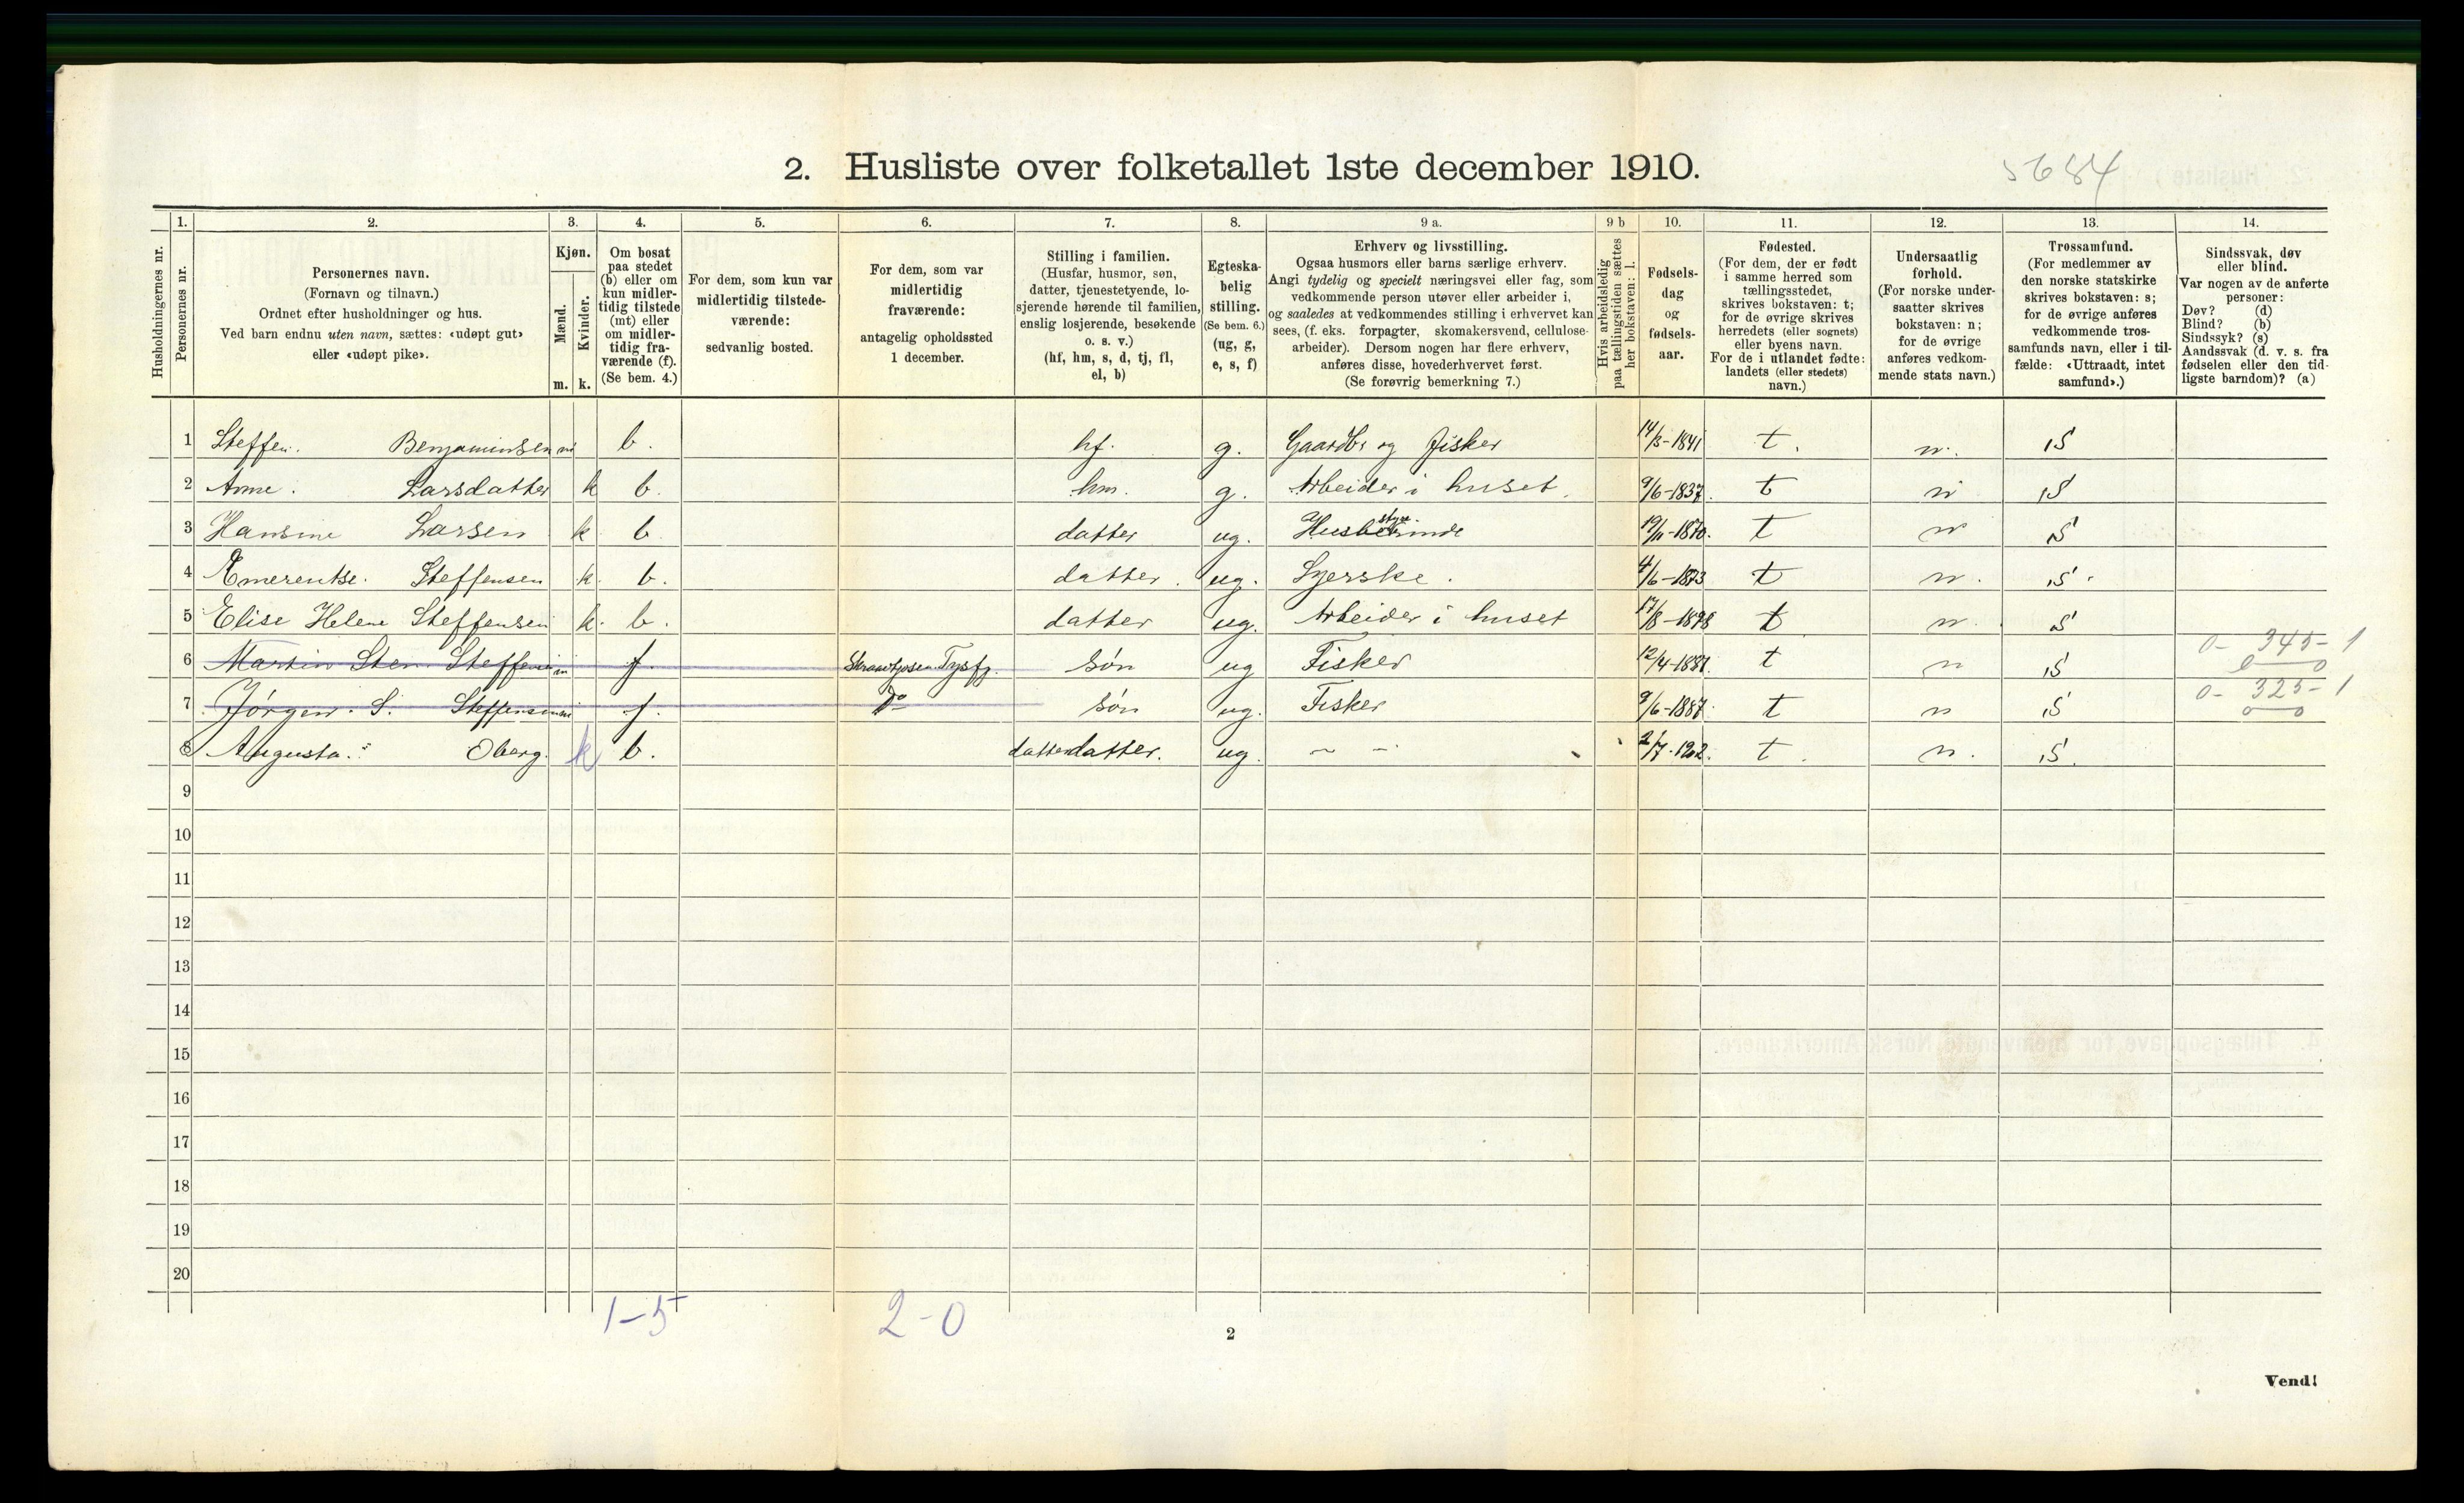 2. Husliste over folketallet 1ste december 1910.
5684
Husholdningernes nr.
1.
Personernes nr.
2.
Personernes navn.
(Fornavn og tilnavn.)
Ordnet efter husholdninger og hus.
Ved barn endnu uten navn, sættes: «udøpt gut»
eller «udøpt pike».
3.
Kjøn.
Mænd.
m.
Kvinder.
k.
4.
Om bosat
paa stedet
(b) eller om
kun midler-
tidig tilstede
(mt) eller
om midler-
tidig fra-
værende (f).
(Se bem. 4.)
5.
For dem, som kun var
midlertidig tilstede-
værende:
sedvanlig bosted.
6.
For dem, som var
midlertidig
fraværende:
antagelig opholdssted
1 december.
7.
Stilling i familien.
(Husfar, husmor, søn,
datter, tjenestetyende, lo-
sjerende hørende til familien,
enslig losjerende, besøkende
o. s. v.)
(hf, hm, s, d, tj, fl,
el, b)
8.
Egteska-
belig
stilling.
(Se bem. 6.)
(ug, g,
e, s, f)
9 a.
Erhverv og livsstilling.
Ogsaa husmors eller barns særlige erhverv.
Angi tydelig og specielt næringsvei eller fag, som
vedkommende person utøver eller arbeider i,
og saaledes at vedkommendes stilling i erhvervet kan
sees, (f. eks. forpagter, skomakersvend, cellulose-
arbeider). Dersom nogen har flere erhverv,
anføres disse, hovederhvervet først.
(Se forøvrig bemerkning 7.)
9 b
Hvis arbeidsledig
paa tællingstiden sættes
her bokstaven: l.
10.
Fødsels-
dag
og
fødsels-
aar.
11.
Fødested.
(For dem, der er født
i samme herred som
tællingsstedet,
skrives bokstaven: t;
for de øvrige skrives
herredets (eller sognets)
eller byens navn.
For de i utlandet fødte:
landets (eller stedets)
navn.)
12.
Undersaatlig
forhold.
(For norske under-
saatter skrives
bokstaven: n;
for de øvrige
anføres vedkom-
mende stats navn.)
13.
Trossamfund.
(For medlemmer av
den norske statskirke
skrives bokstaven: s;
for de øvrige anføres
vedkommende tros-
samfunds navn, eller i til-
fælde: «Uttraadt, intet
samfund».)
14.
Sindssvak, døv
eller blind.
Var nogen av de anførte
personer:
Døv? (d)
Blind? (b)
Sindssyk? (s)
Aandssvak (d. v. s. fra
fødselen eller den tid-
ligste barndom)? (a)
1 Steffen. Benjaminsen m b. hf. g. Gaardbr og Fisker 14/3-1841 t. n. S
2 Anne. Larsdatter k b. hm. g. Arbeider i huset. 9/6-1837. t n S
3 Hansine Larsen k b. datter ug. 19/11-1870. t n S
4 Emerentse. Steffensen k. b. datter. ug. Syerske. 4/6-1873 t n. S.
5 Elise Helene Steffensen k. b. datter ug. Arbeider i huset 17/8-1878 t n. S
6 Martin Sten. Steffensen m f. Tysfj. søn ug Fisker 12/4-1881. t n S 0- 345-1
0 0
7 Jørgen. S. Steffensen m f. Do søn ug. Fisker 9/6-1887. t n S 0- 325-1
0 0
8 Augusta. Oberg. k b. datterdatter. ug. - - 2/7.1902. t. n. S.
9
10
11
12
13
14
15
16
17
18
19
20
1-5 2-0
2
Vend!